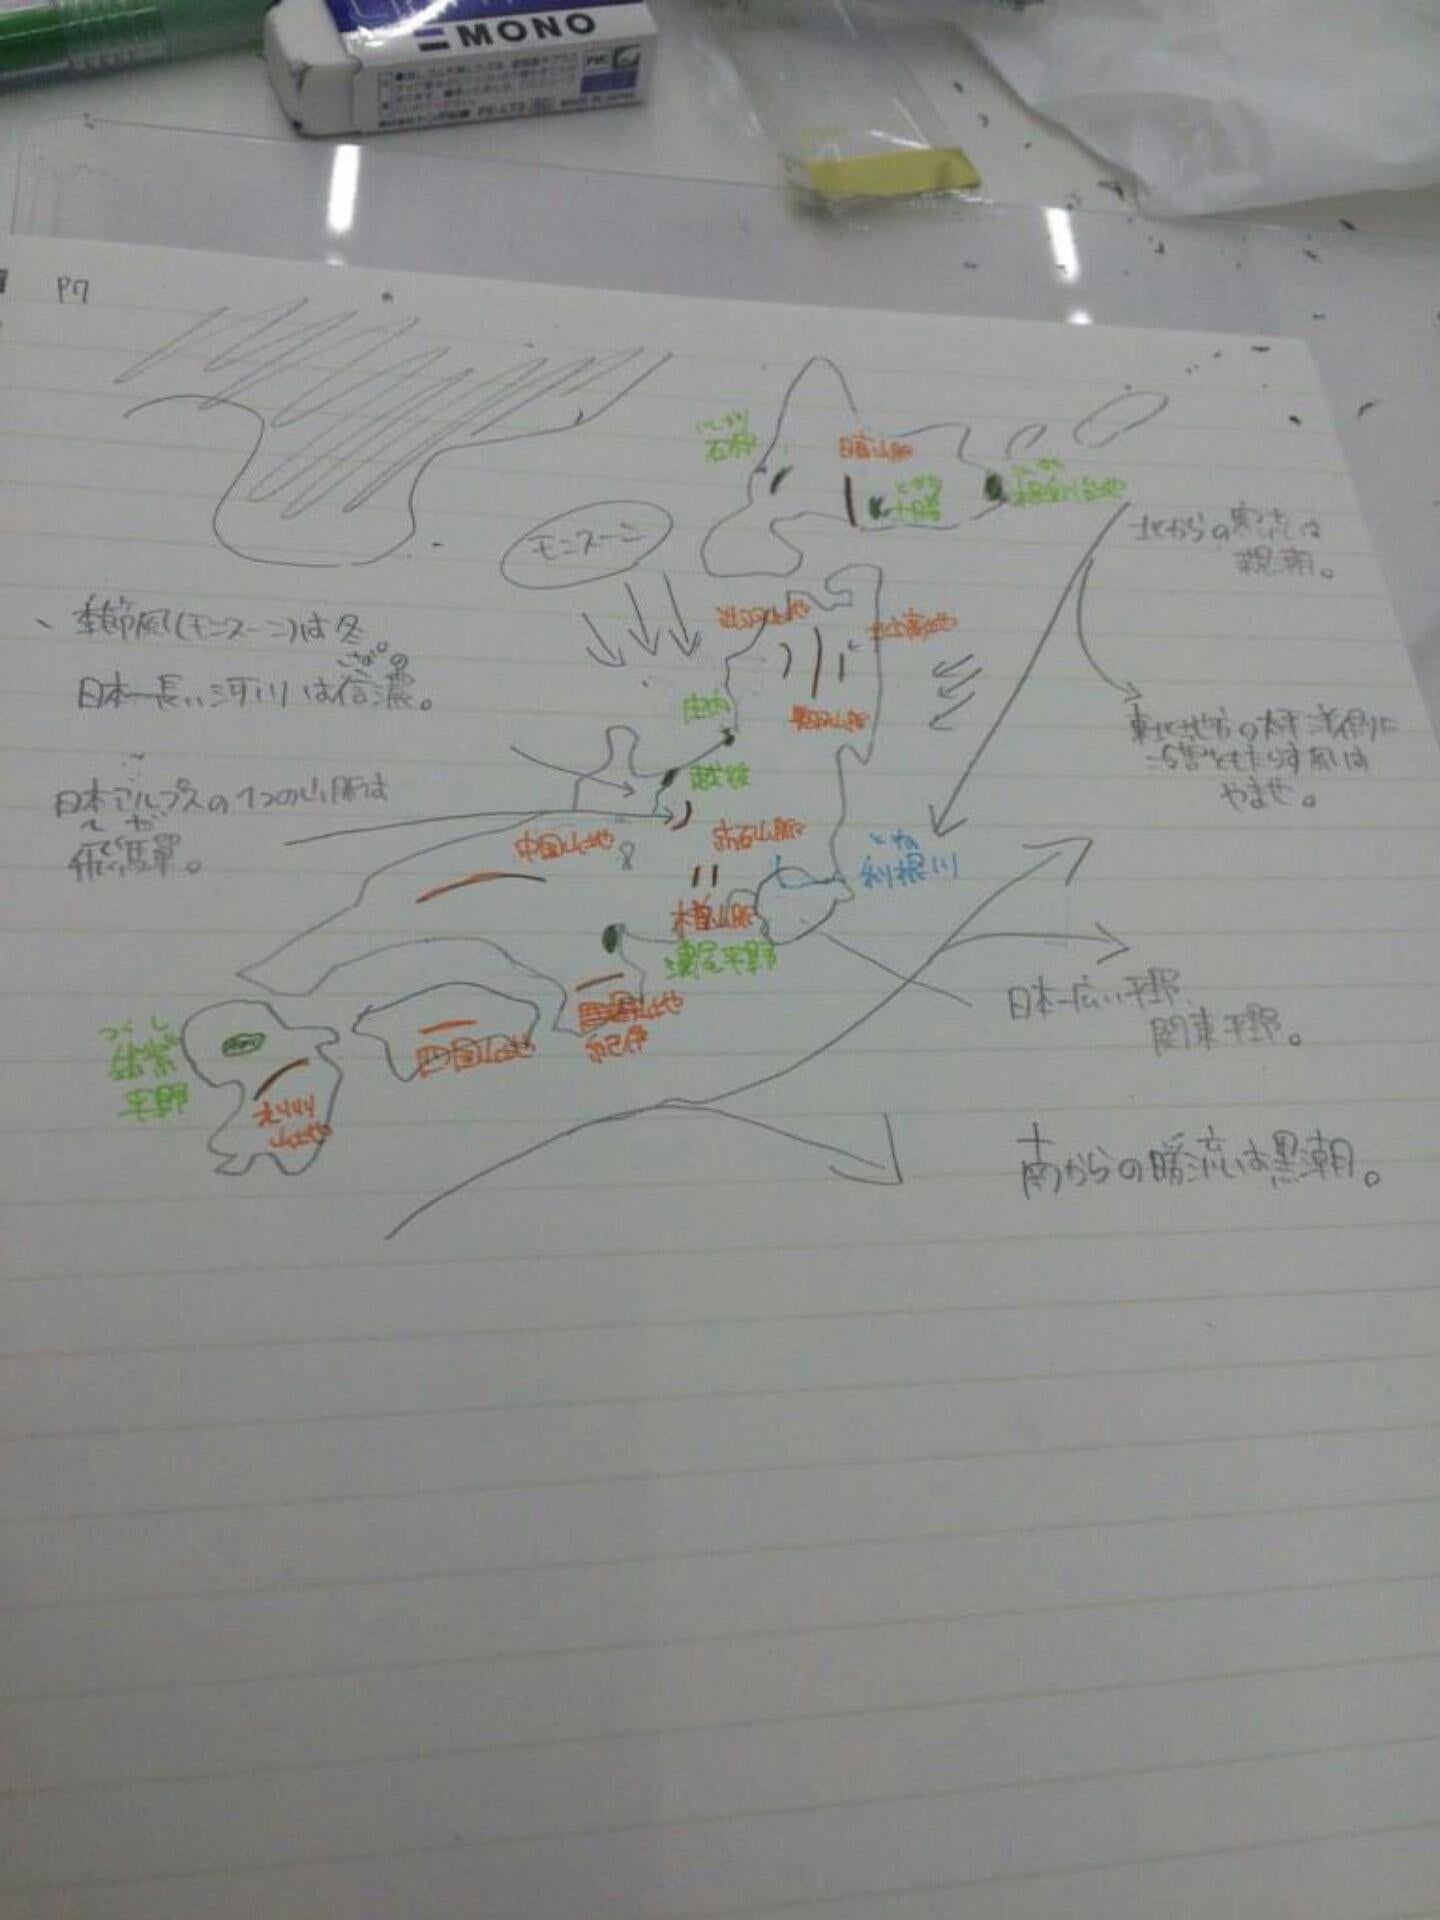 MONO
P7
いしかり
石狩
日高山脈
とかち
十勝
根釧台地
モンスーン
北からの寒流は
親潮。
季節風(モンスーン)は冬。
しなの
日本一長い河川は信濃。
出羽山地
北上高地
奥羽山脈
庄内
越後
東北地方の太平洋側に
冷害をもたらす風は
やませ。
日本アルプスの1つの山脈は
ひだ
飛驒。
中国山地
赤石山脈
とね
利根川
木曽山脈
濃尾平野
日本一広い平野
関東平野。
紀伊
四国山地
つくし
筑紫
平野
九州
山地
南からの暖流は黒潮。